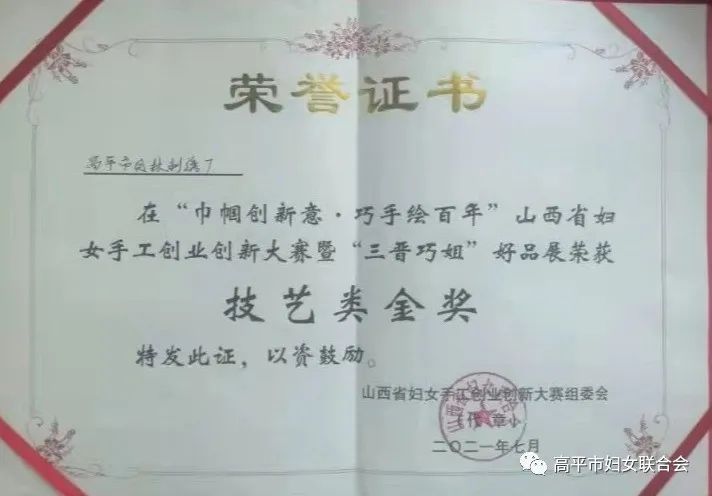 荣誉证书
高平市良林刺绣厂
在“巾帼创新意·巧手绘百年”山西省妇
女手工创业创新大赛暨“三晋巧姐”好品展荣获
技艺类金奖
特发此证，以资鼓励。
山西省妇女手工创业创新大赛组委会
（代章）
二〇二一年七月
高平市妇女联合会